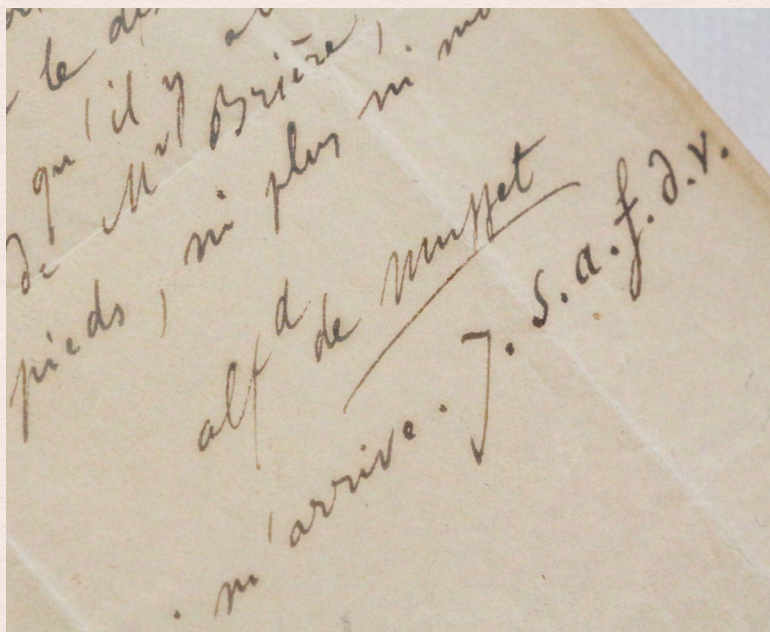 le
qu'il y
de Mr Brière,
pieds, ni plus ni
alfd de Musset
m'arrive. J. s. a. f. d. v.